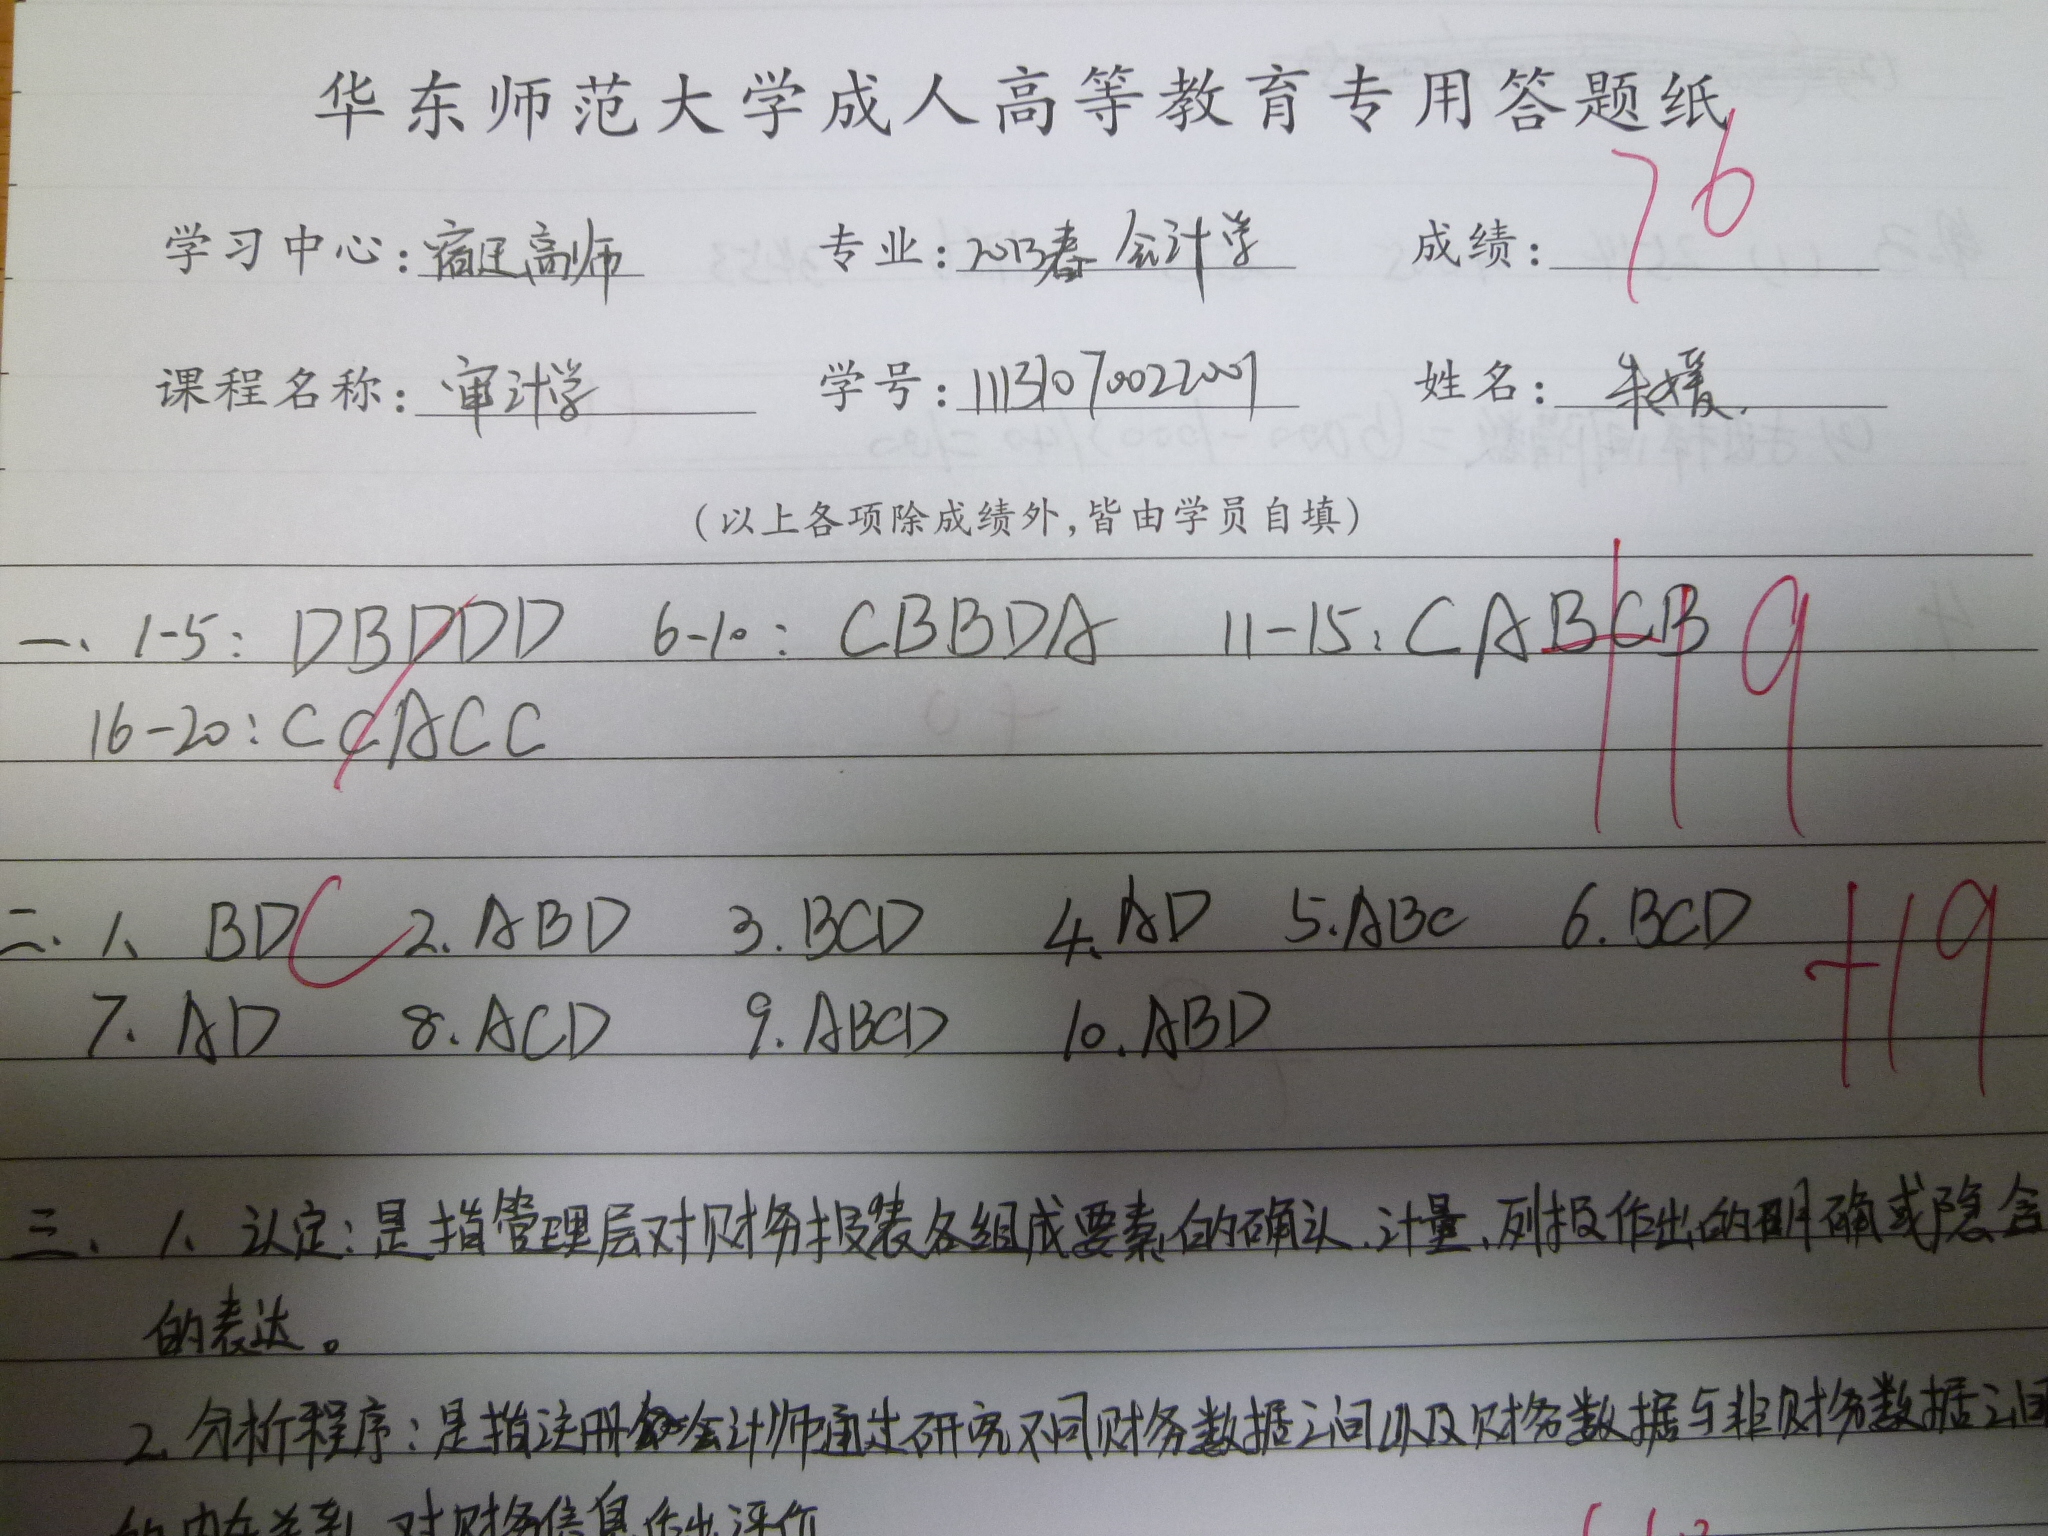 华东师范大学成人高等教育专用答题纸
76
学习中心：宿迁高师 专业：2013春 会计学 成绩：
课程名称：审计学 学号：11131070022001 姓名：朱媛
（以上各项除成绩外，皆由学员自填）
一、1-5：DBDDD 6-10：CBBDA 11-15：CABCB +19
16-20：CCACC
二、1、BD 2.ABD 3.BCD 4.AD 5.ABC 6.BCD +19
7.AD 8.ACD 9.ABCD 10.ABD
三、1、认定：是指管理层对财务报表各组成要素的确认、计量、列报作出的明确或隐含
的表达。
2.分析程序：是指注册会计师通过研究不同财务数据之间以及财务数据与非财务数据之间
的内在关系，对财务信息作出评价